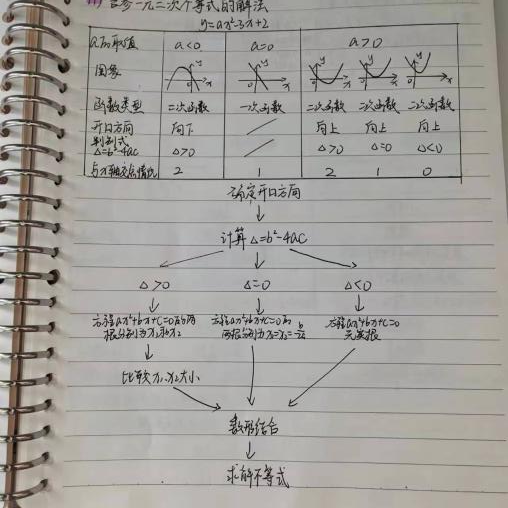 含参一元二次不等式的解法
y=ax²-3x+2
a的取值 a<0 a=0 a>0
图象
函数类型 二次函数 一次函数 二次函数 二次函数 二次函数
开口方向 向下 向上 向上 向上
判别式
Δ=b²-4ac Δ>0 Δ>0 Δ=0 Δ<0
与x轴交点情况 2 1 2 1 0
确定开口方向
计算Δ=b²-4ac
Δ>0 Δ=0 Δ<0
方程ax²+bx+c=0的两 方程ax²+bx+c=0的 方程ax²+bx+c=0
根分别为x₁和x₂ 两根分别为x₁=x₂=-b/2a 无实根
比较x₁、x₂大小
数形结合
求解不等式